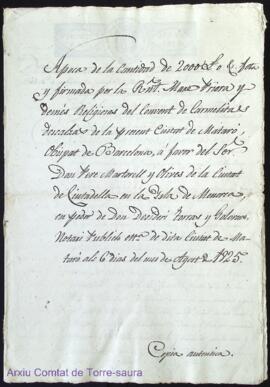 Apoca de la Cantidad de 2000 L o C, feta
y firmada per la Rnt. Mare Priora y
demès Religiosas del Convent de Carmelitas
descalsas de la present Ciutat de Mataró,
Obispat de Barcelona, à favor del Sor.
Don Pere Martorell y Olives de la Ciutat
de Ciutadella en la Isla de Menorca,
en poder de Don Desideri Torras y
Notari Publich de dita Ciutat de Ma-
taró als 6 dias del mes de Agost de 1825.
Copia autentica.
Arxiu Comtat de Torre-saura